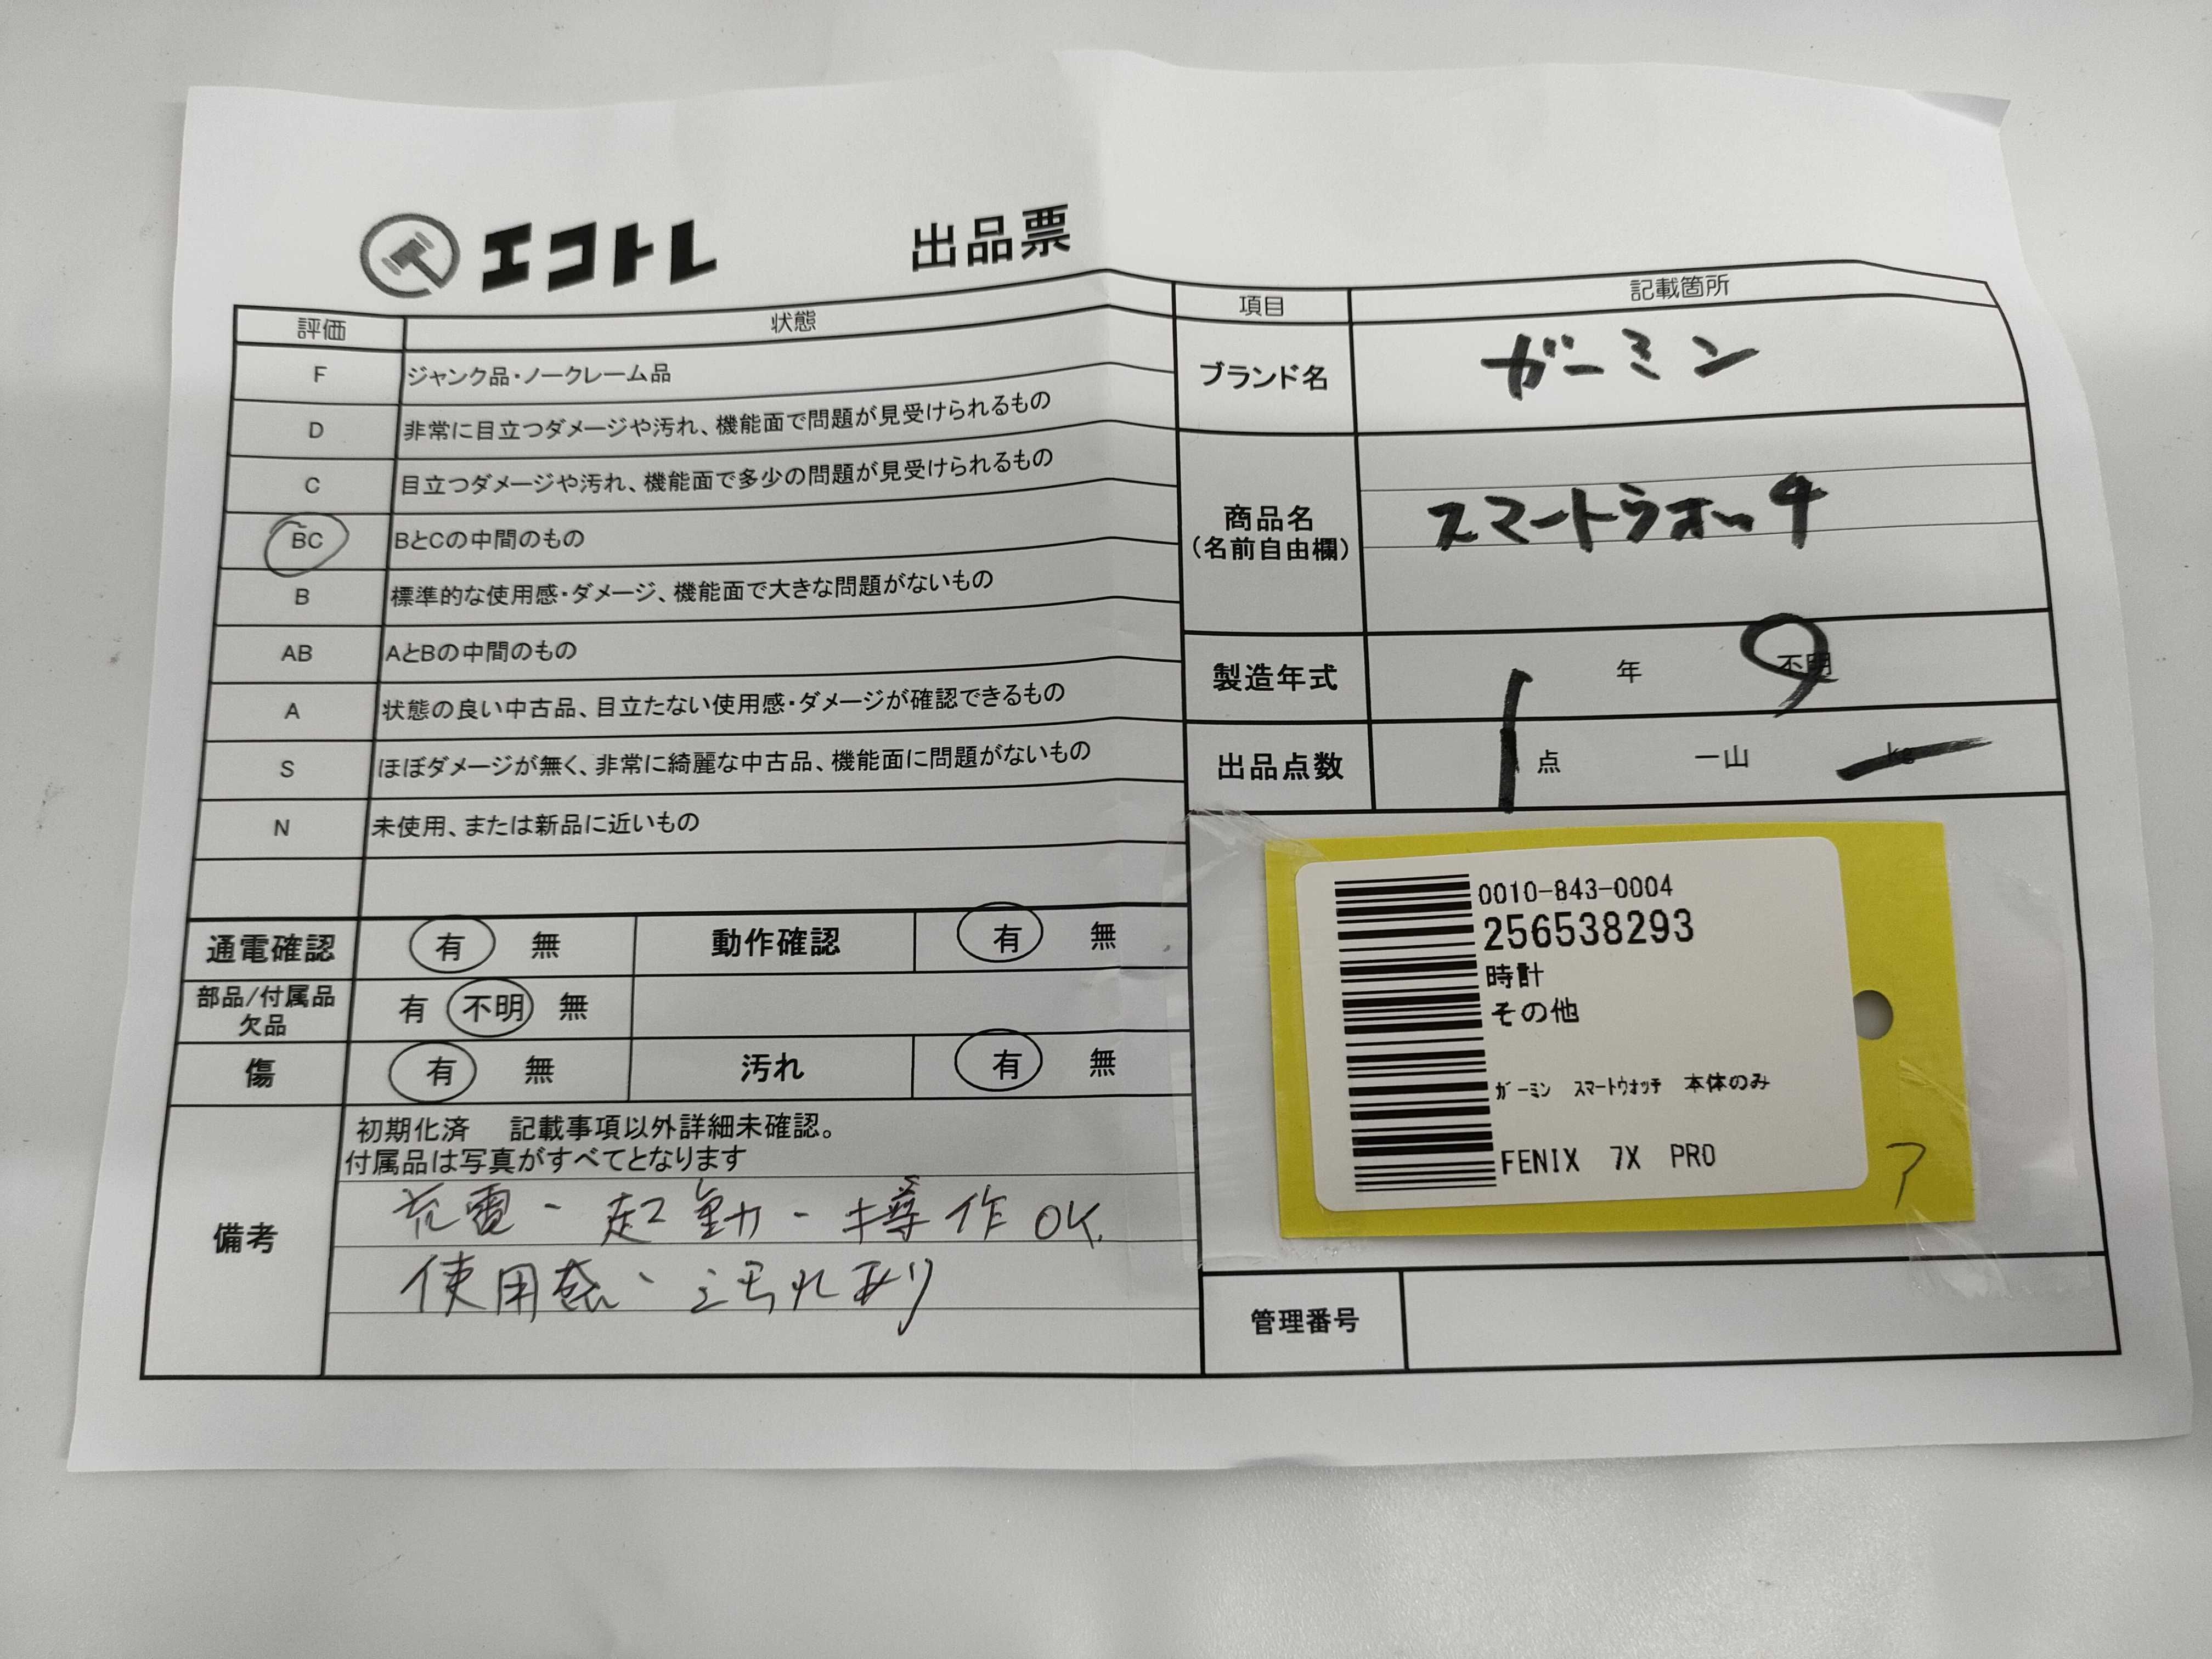 エコトレ 出品票
評価 状態
F ジャンク品・ノークレーム品
D 非常に目立つダメージや汚れ、機能面で問題が見受けられるもの
C 目立つダメージや汚れ、機能面で多少の問題が見受けられるもの
BC BとCの中間のもの
B 標準的な使用感・ダメージ、機能面で大きな問題がないもの
AB AとBの中間のもの
A 状態の良い中古品、目立たない使用感・ダメージが確認できるもの
S ほぼダメージが無く、非常に綺麗な中古品、機能面に問題がないもの
N 未使用、または新品に近いもの
通電確認 有 無 動作確認 有 無
部品/付属品
欠品 有 不明 無
傷 有 無 汚れ 有 無
備考
初期化済 記載事項以外詳細未確認。
付属品は写真がすべてとなります
充電・起動・操作OK.
使用感・汚れあり
項目 記載箇所
ブランド名 ガーミン
商品名
(名前自由欄) スマートウオッチ
製造年式 年 不明
出品点数 1 点 一山 kg
0010-843-0004
256538293
時計
その他
ｶﾞｰﾐﾝ ｽﾏｰﾄｳｫｯﾁ 本体のみ
FENIX 7X PRO
ア
管理番号